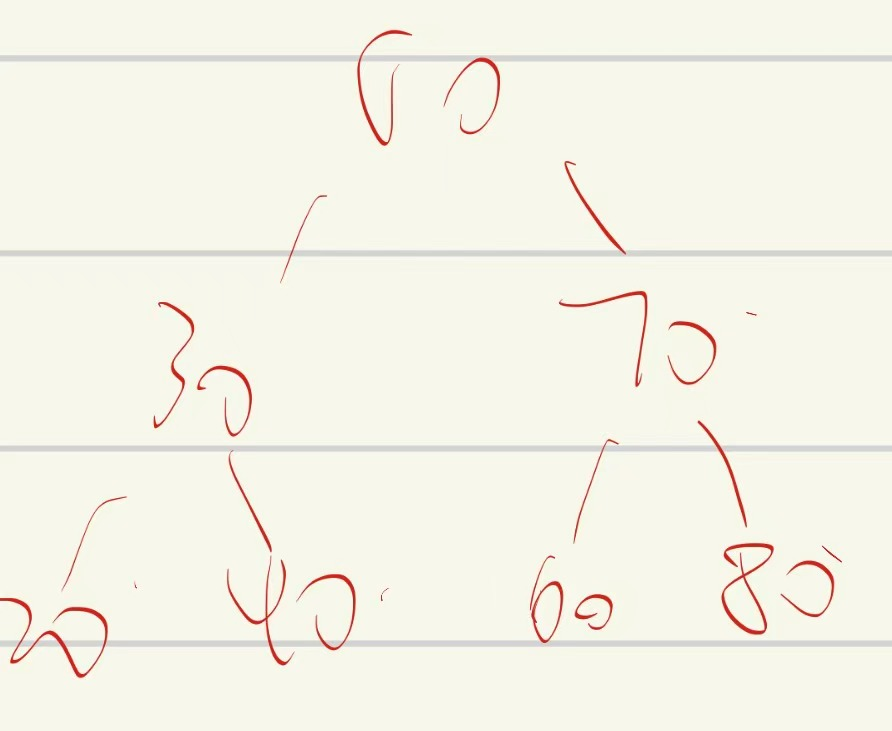 50
30 70
20 40 60 80